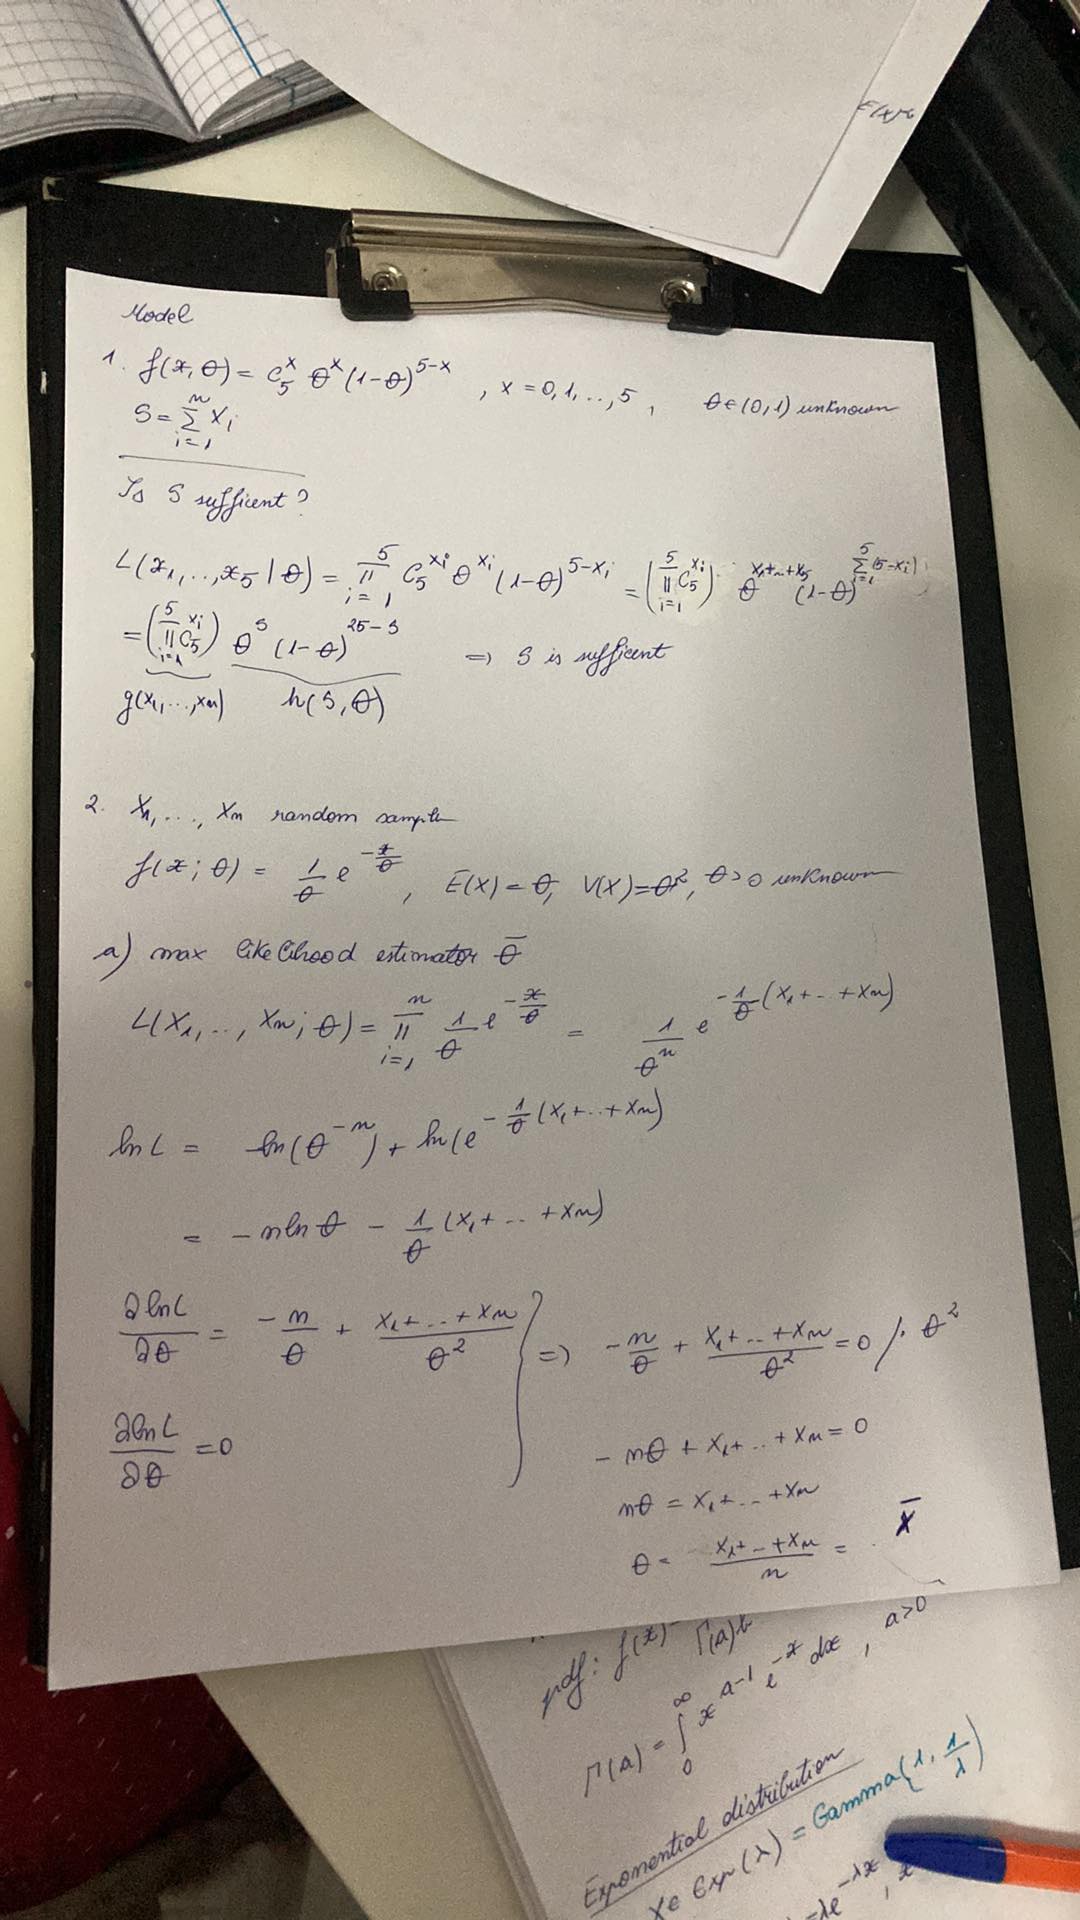 E(X)=
Model
1. f(x, θ) = C₅ˣ θˣ (1-θ)⁵⁻ˣ , x = 0,1,..,5 , θ∈(0,1) unknown
S = Σᵢ₌₁ⁿ Xᵢ
Is S sufficent?
L(x₁,..,x₅ | θ) = ∏ᵢ₌₁⁵ C₅^{xᵢ} θ^{xᵢ} (1-θ)^{5-xᵢ} = (∏ᵢ₌₁⁵ C₅^{xᵢ}) θ^{x₁+..+x₅} (1-θ)^{Σᵢ₌₁⁵(5-xᵢ)}
= (∏ᵢ₌₁⁵ C₅^{xᵢ}) θ^S (1-θ)^{25-S} ⇒ S is sufficent
g(x₁,...,xₙ) h(S, θ)
2. X₁,..., Xₙ random sample
f(x; θ) = 1/θ e^{-x/θ} , E(X) = θ, V(X) = θ², θ>0 unknown
a) max likelihood estimator θ̄
L(X₁,.., Xₙ; θ) = ∏ᵢ₌₁ⁿ 1/θ e^{-x/θ} = 1/θⁿ e^{-1/θ (X₁+..+Xₙ)}
ln L = ln(θ⁻ⁿ) + ln(e^{-1/θ (X₁+..+Xₙ)}
= -n ln θ - 1/θ (X₁+..+Xₙ)
∂lnL/∂θ = -n/θ + (X₁+..+Xₙ)/θ² } ⇒ -n/θ + (X₁+..+Xₙ)/θ² = 0 /· θ²
∂lnL/∂θ = 0
-nθ + X₁+..+Xₙ = 0
nθ = X₁+..+Xₙ
θ = (X₁+..+Xₙ)/n = X̄
pdf: f(x)
Γ(a)
Γ(a) = ∫₀^∞ x^{a-1} e^{-x} dx , a>0
Exponential distribution
X∈ Exp(λ) = Gamma(1, 1/λ)
=λe^{-λx}, x